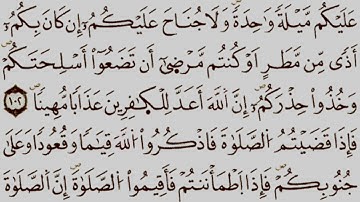 عَلَيۡكُم مَّيۡلَةٗ وَٰحِدَةٗۚ وَلَا جُنَاحَ عَلَيۡكُمۡۥٓ إِن كَانَ بِكُمۡۥٓ
أَذٗى مِّن مَّطَرٍ أَوۡ كُنتُم مَّرۡضَىٰٓ أَن تَضَعُوٓاْ أَسۡلِحَتَكُمۡۖ
وَخُذُواْ حِذۡرَكُمۡۥٓۖ إِنَّ ٱللَّهَ أَعَدَّ لِلۡكَٰفِرِينَ عَذَابٗا مُّهِينٗا ١٠٢
فَإِذَا قَضَيۡتُمُ ٱلصَّلَوٰةَ فَٱذۡكُرُواْ ٱللَّهَ قِيَٰمٗا وَقُعُودٗا وَعَلَىٰ
جُنُوبِكُمۡۖ فَإِذَا ٱطۡمَأۡنَنتُمۡ فَأَقِيمُواْ ٱلصَّلَوٰةَۖ إِنَّ ٱلصَّلَوٰةَ